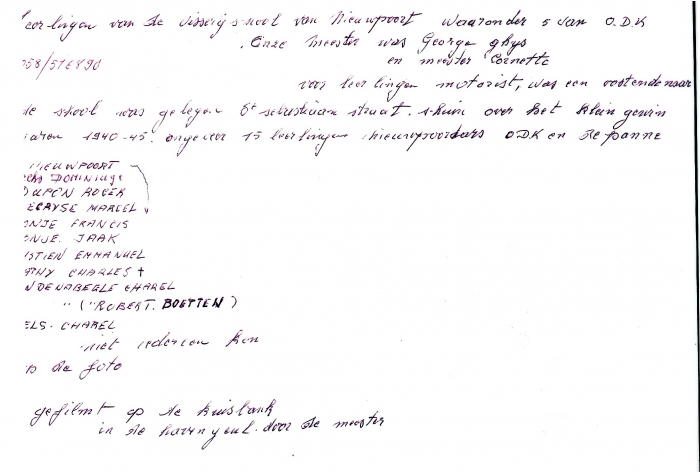 eerlingen van de visserijschool van Nieuwpoort waaronder 5 van O.D.K
. Onze meester was George ghys
058/51 en meester Cornette
voor leerlingen motorist, was een oostendenaar
de skool was gelegen St sebastiaan straat. shuin over het klein gewin
aren 1940-45. ongeveer 15 leerlingen nieuwpoorters ODK en De panne
NIEUWPOORT
DOMINIQUE
ROGER
MARCEL
ONJE FRANCIS
ONJE. JAAK
STIEN EMMANUEL
THY CHARLES +
NDENABEELE CHAREL
" ("ROBERT. BOETTEN)
ELS. CHAREL
niet iedereen kon
op de foto
gefilmt op de kuisbank
in de havengeul. door de meester